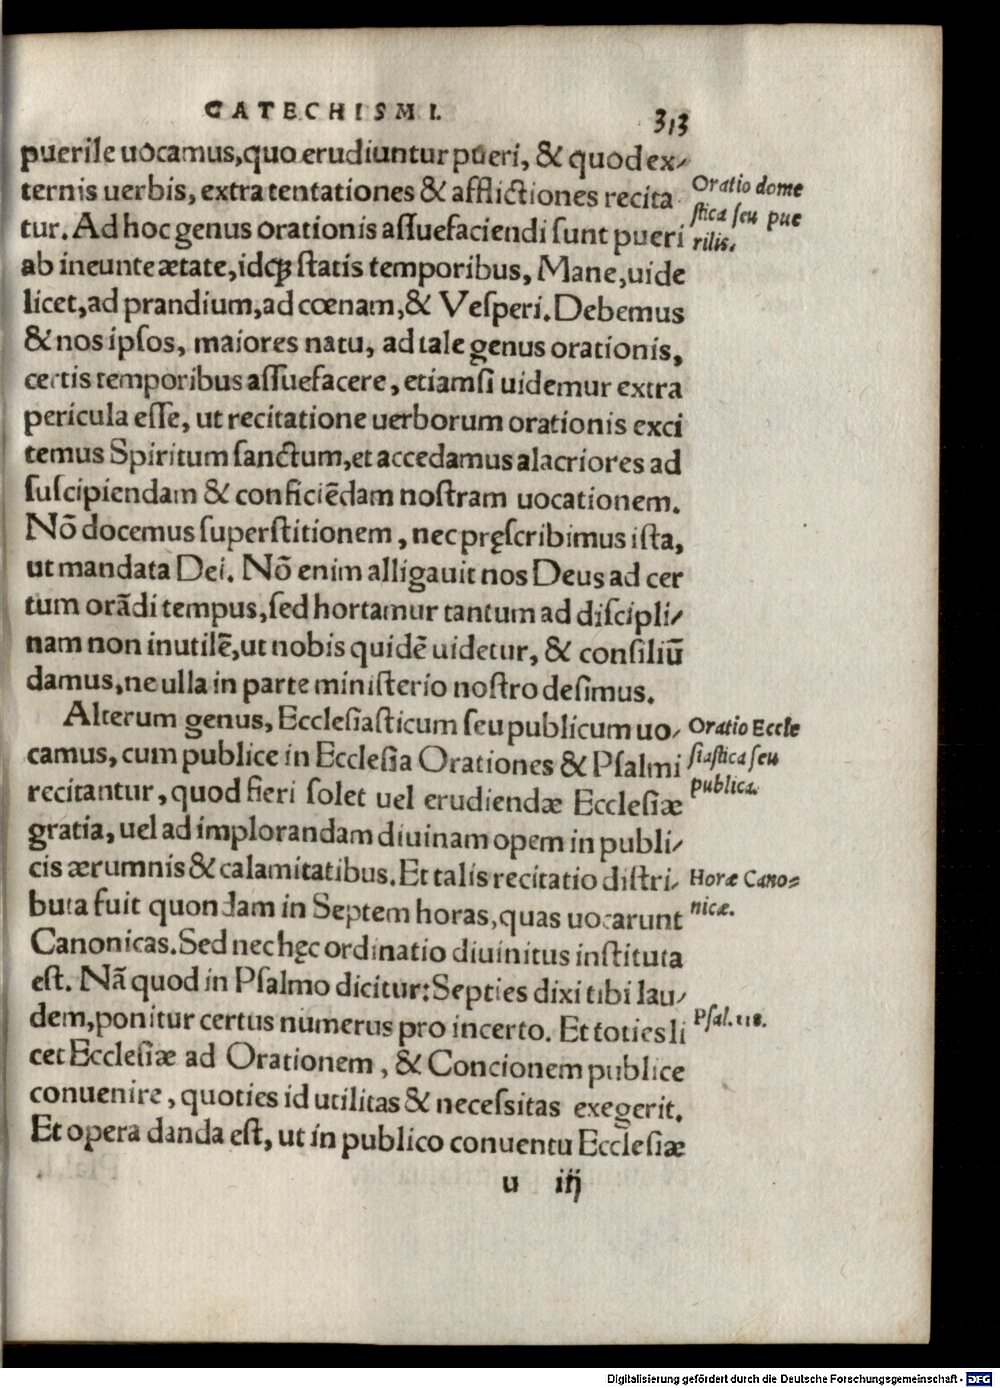 CATECHISMI. 313
puerile uocamus, quo erudiuntur pueri, & quod ex-
ternis uerbis, extra tentationes & afflictiones recita
tur. Ad hoc genus orationis aſſuefaciendi ſunt pueri
ab ineunte ætate, idq́ꝫ ſtatis temporibus, Mane, uide
licet, ad prandium, ad cœnam, & Veſperi. Debemus
& nos ipſos, maiores natu, ad tale genus orationis,
certis temporibus aſſuefacere, etiamſi uidemur extra
pericula eſſe, ut recitatione uerborum orationis exci
temus Spiritum ſanctum, et accedamus alacriores ad
ſuſcipiendam & conficiēdam noſtram uocationem.
Nō docemus ſuperſtitionem, nec pręſcribimus iſta,
ut mandata Dei. Nō enim alligauit nos Deus ad cer
tum orādi tempus, ſed hortamur tantum ad diſcipli-
nam non inutilē, ut nobis quidē uidetur, & conſiliū
damus, ne ulla in parte miniſterio noſtro deſimus.
Alterum genus, Eccleſiaſticum ſeu publicum uo-
camus, cum publice in Eccleſia Orationes & Pſalmi
recitantur, quod fieri ſolet uel erudiendæ Eccleſiæ
gratia, uel ad implorandam diuinam opem in publi-
cis ærumnis & calamitatibus. Et talis recitatio diſtri-
buta fuit quondam in Septem horas, quas uocarunt
Canonicas. Sed nec hęc ordinatio diuinitus inſtituta
eſt. Nā quod in Pſalmo dicitur: Septies dixi tibi lau-
dem, ponitur certus numerus pro incerto. Et toties li
cet Eccleſiæ ad Orationem, & Concionem publice
conuenire, quoties id utilitas & neceſsitas exegerit.
Et opera danda eſt, ut in publico conuentu Eccleſiæ
u iij
Oratio dome
ſtica ſeu pue
rilis.
Oratio Eccle
ſiaſtica ſeu
publica.
Horæ Cano=
nicæ.
Pſal. 118.
Digitalisierung gefördert durch die Deutsche Forschungsgemeinschaft - DFG